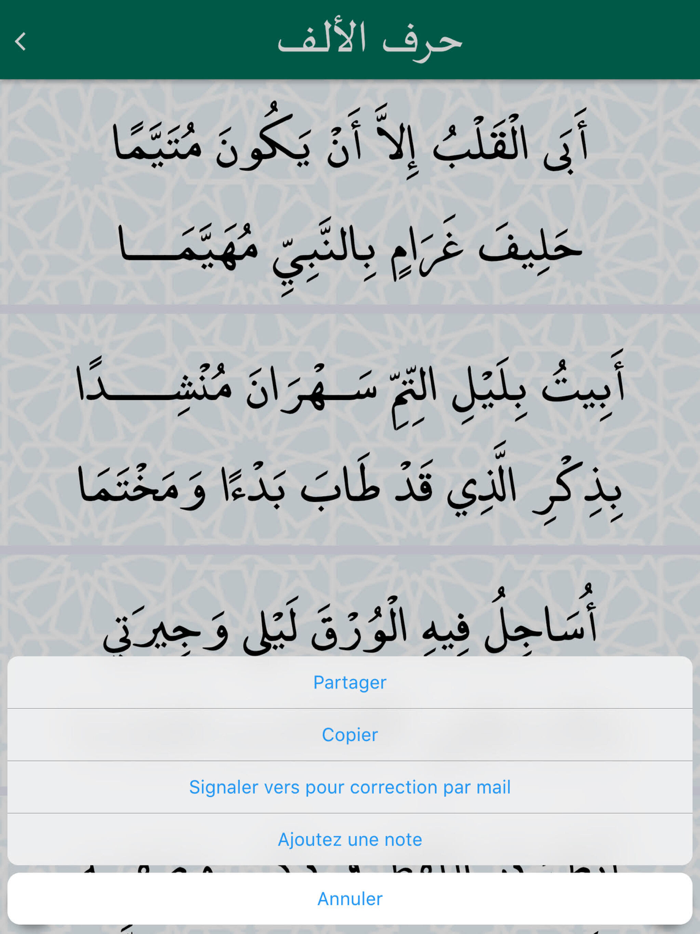 حرف الألف
أَبَى الْقَلْبُ إِلاَّ أَنْ يَكُونَ مُتَيَّمًا
حَلِيفَ غَرَامٍ بِالنَّبِيِّ مُهَيَّمَـــــا
أَبِيتُ بِلَيْلِ التِّمِّ سَـــهْرَانَ مُنْشِـــــدًا
بِذِكْرِ الَّذِي قَدْ طَابَ بَدْءًا وَمَخْتَمَا
أُسَاجِلُ فِيهِ الْوُرْقَ لَيْلِى وَجِيرَتِي
Partager
Copier
Signaler vers pour correction par mail
Ajoutez une note
Annuler